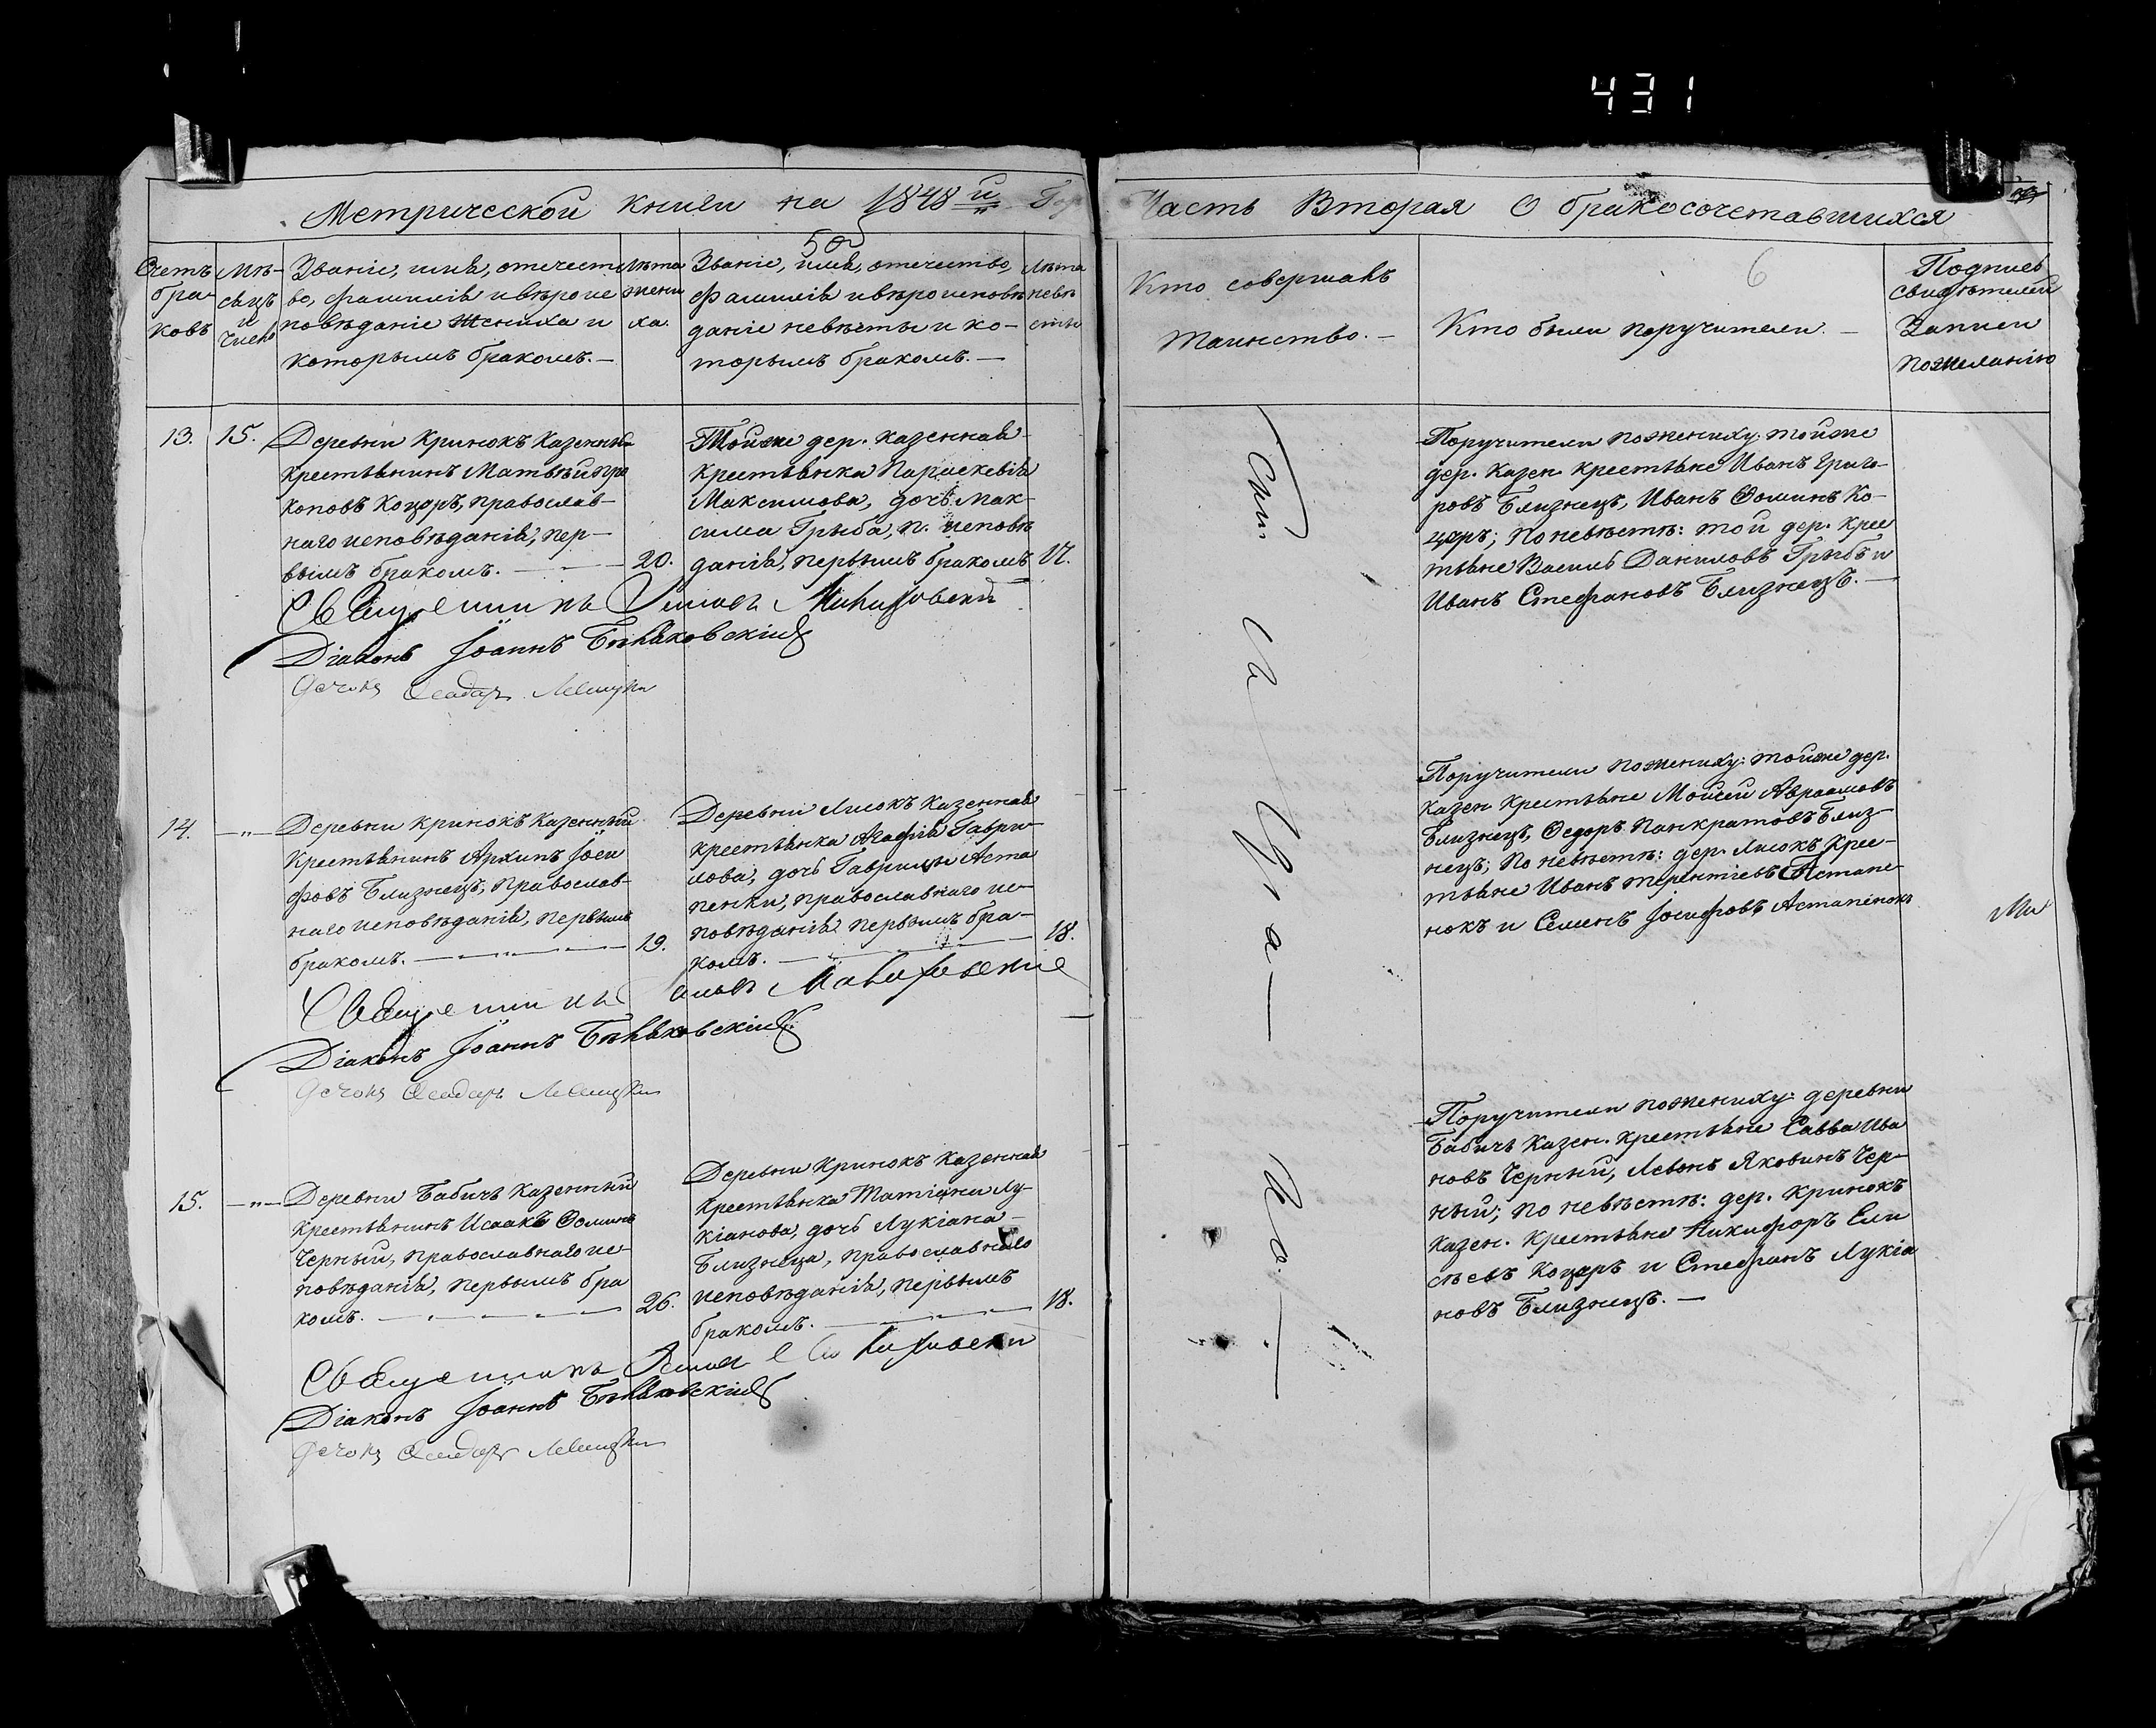 431
Метрической книги на 1848 й Го
Часть Вторая О бракосочетавшихся
50
6
Счетъ
бра-
ковъ
Мѣ-
сяцъ
и
Число
Званіе, имя, отечест
во, фамилія и вѣроис
повѣданіе Жениха и
которымъ бракомъ.—
Лѣта
жени
ха.
Званіе, имя, отечество,
фамилія и вѣроисповѣ
даніе невѣсты и ко-
торымъ бракомъ.—
Лѣта
невѣ
сты
Кто совершалъ
Таинство.—
Кто были поручители.—
Подпись
свидѣтелей
Записи
по желанію
13. 15.
Деревни Кринокъ Казенный
крестьянинъ Матвѣй Про
коповъ Коцаръ, православ-
наго исповѣданія, пер-
вымъ бракомъ.— 20.
Тойже дер. казенная
крестьянка Параскевія
Максимова, дочь Мак-
сима Грыба, п. исповѣ
данія, первымъ бракомъ 17.
Священникъ
Діаконъ Іоаннъ
Поручители по жениху: тойже
дер. Казен. крестьяне Иванъ Григо-
ровъ Близнецъ, Иванъ Ѳоминъ Ко-
царъ; по невѣстѣ: той дер. крес
тьяне Василь Даниловъ Грыбъ и
Иванъ Стефановъ Близнецъ.—
14. —"—
Деревни Кринокъ Казенный
Крестьянинъ Архипъ Іоси
фовъ Близнецъ, Православ-
наго исповѣданія, первымъ
бракомъ.— 19.
Деревни Лисокъ Казенная
крестьянка Агафія Гаври-
лова, дочь Гаврилы Аста
пенки, православнаго ис-
повѣданія первымъ бра-
комъ.— 18.
Священникъ
Діаконъ Іоаннъ
Поручители по жениху: тойже дер.
Казен крестьяне Моисей Авраамовъ
Близнецъ, Ѳедоръ Панкратовъ Близ-
нецъ; по невѣстѣ: дер. Лисокъ Крес-
тьяне Иванъ Терентіевъ Астапе
нокъ и Семенъ Іосифовъ Астапенокъ
15. —"—
Деревни Бабичъ Казенный
Крестьянинъ Исаакъ Ѳоминъ
Черный, Православнаго ис-
повѣданія, первымъ бра
комъ.— 26.
Деревни Кринокъ Казенная
крестьянка Татіяна Лу-
кіанова, дочь Лукіана
Близнеца, православнаго
исповѣданія, первымъ
бракомъ.— 18.
Священникъ
Діаконъ Іоаннъ
Поручители по жениху: деревни
Бабичъ Казен. крестьяне Савва Ива
новъ Черный, Левонъ Яковинъ Чер-
ный; по невѣстѣ: дер. Кринокъ
Казен. Крестьяне Никифоръ Ели
сѣевъ Коцаръ и Стефанъ Лукіа
новъ Близнецъ.—